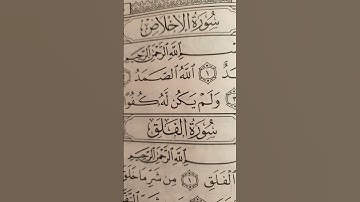 سُورَةُ الإِخْلَاصِ
بِسْمِ اللَّهِ الرَّحْمَٰنِ الرَّحِيمِ
دٌ ١ اللَّهُ الصَّمَدُ
وَلَمْ يَكُن لَّهُ كُفُوًا
سُورَةُ الْفَلَقِ
اللَّهِ الرَّحْمَٰنِ الرَّحِيمِ
الْفَلَقِ ١ مِن شَرِّ مَا خَلَقَ